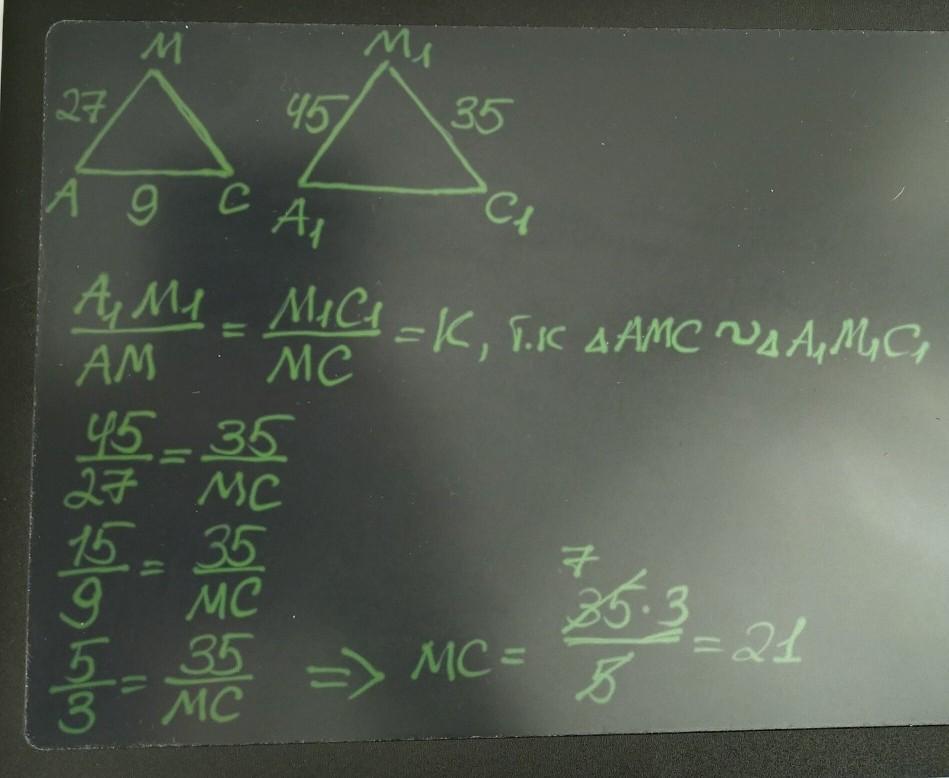 M M₁
27 45 35
A 9 C A₁ C₁
A₁M₁/AM = M₁C₁/MC = K, т.к △AMC ~ △A₁M₁C₁
45/27 = 35/MC
15/9 = 35/MC
5/3 = 35/MC => MC = 35·3/5 = 21
7